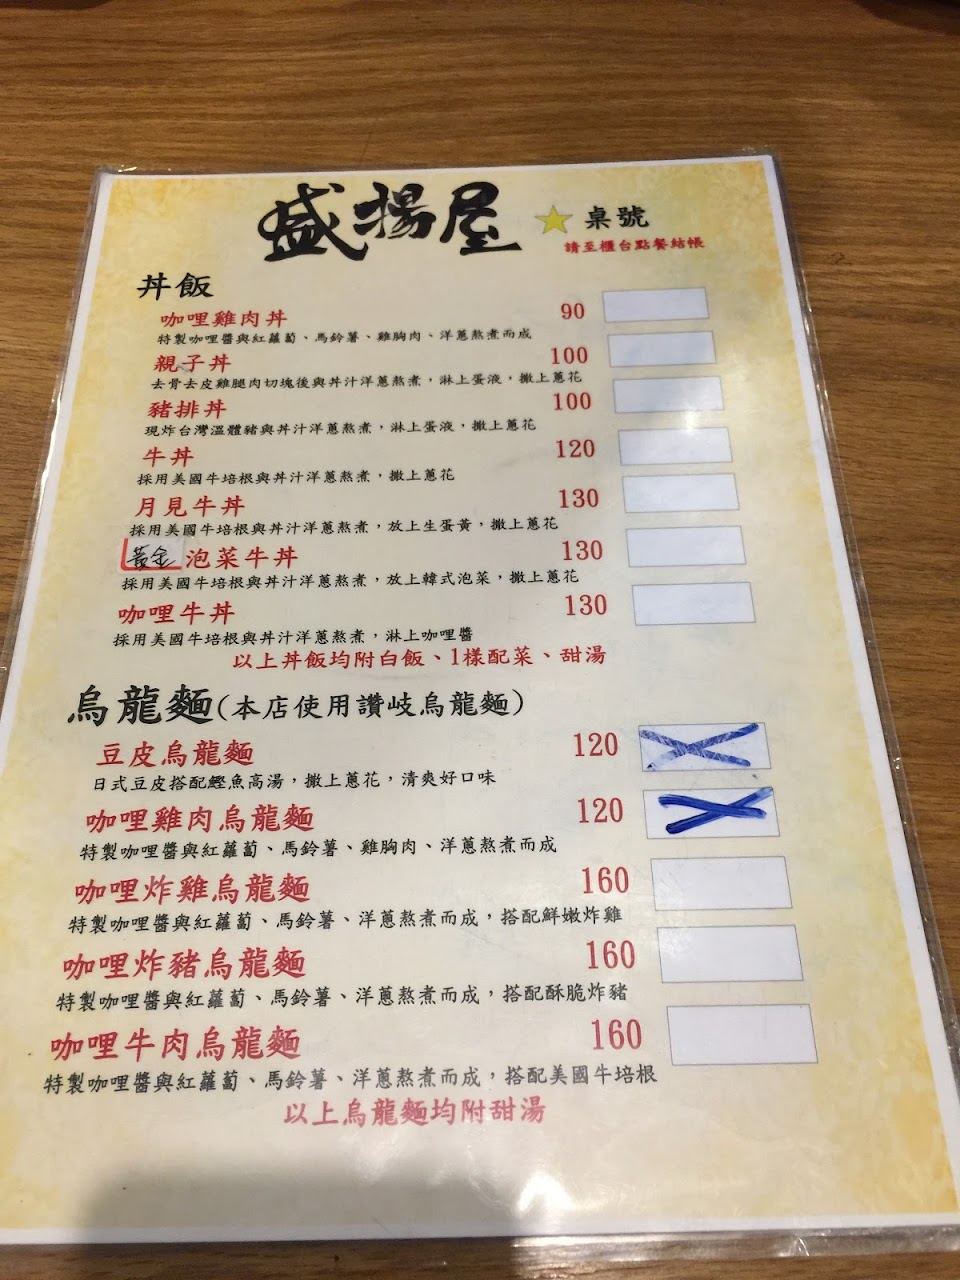 盛揚屋 桌號
請至櫃台點餐結帳
丼飯
咖哩雞肉丼 90
特製咖哩醬與紅蘿蔔、馬鈴薯、雞胸肉、洋蔥熬煮而成
親子丼 100
去骨去皮雞腿肉切塊後與丼汁洋蔥熬煮，淋上蛋液，撒上蔥花
豬排丼 100
現炸台灣溫體豬與丼汁洋蔥熬煮，淋上蛋液，撒上蔥花
牛丼 120
採用美國牛培根與丼汁洋蔥熬煮，撒上蔥花
月見牛丼 130
採用美國牛培根與丼汁洋蔥熬煮，放上生蛋黃，撒上蔥花
黃金泡菜牛丼 130
採用美國牛培根與丼汁洋蔥熬煮，放上韓式泡菜，撒上蔥花
咖哩牛丼 130
採用美國牛培根與丼汁洋蔥熬煮，淋上咖哩醬
以上丼飯均附白飯、1樣配菜、甜湯
烏龍麵(本店使用讚岐烏龍麵)
豆皮烏龍麵 120
日式豆皮搭配鰹魚高湯，撒上蔥花，清爽好口味
咖哩雞肉烏龍麵 120
特製咖哩醬與紅蘿蔔、馬鈴薯、雞胸肉、洋蔥熬煮而成
咖哩炸雞烏龍麵 160
特製咖哩醬與紅蘿蔔、馬鈴薯、洋蔥熬煮而成，搭配鮮嫩炸雞
咖哩炸豬烏龍麵 160
特製咖哩醬與紅蘿蔔、馬鈴薯、洋蔥熬煮而成，搭配酥脆炸豬
咖哩牛肉烏龍麵 160
特製咖哩醬與紅蘿蔔、馬鈴薯、洋蔥熬煮而成，搭配美國牛培根
以上烏龍麵均附甜湯